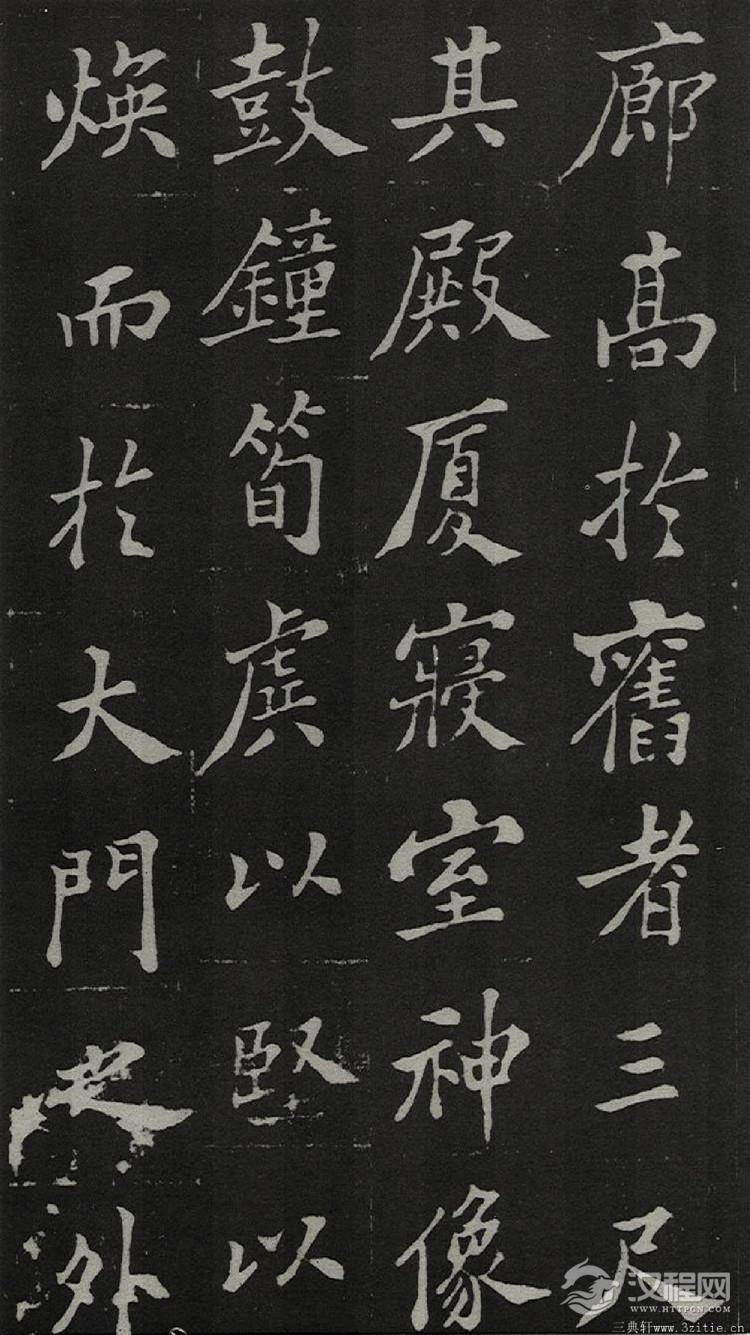 廊高於舊者三尺
其殿厦寢室神像
鼓鐘筍虡以堅以
煥而於大門之外
汉程网
WWW.HTTPCN.COM
三典轩www.3zitie.cn